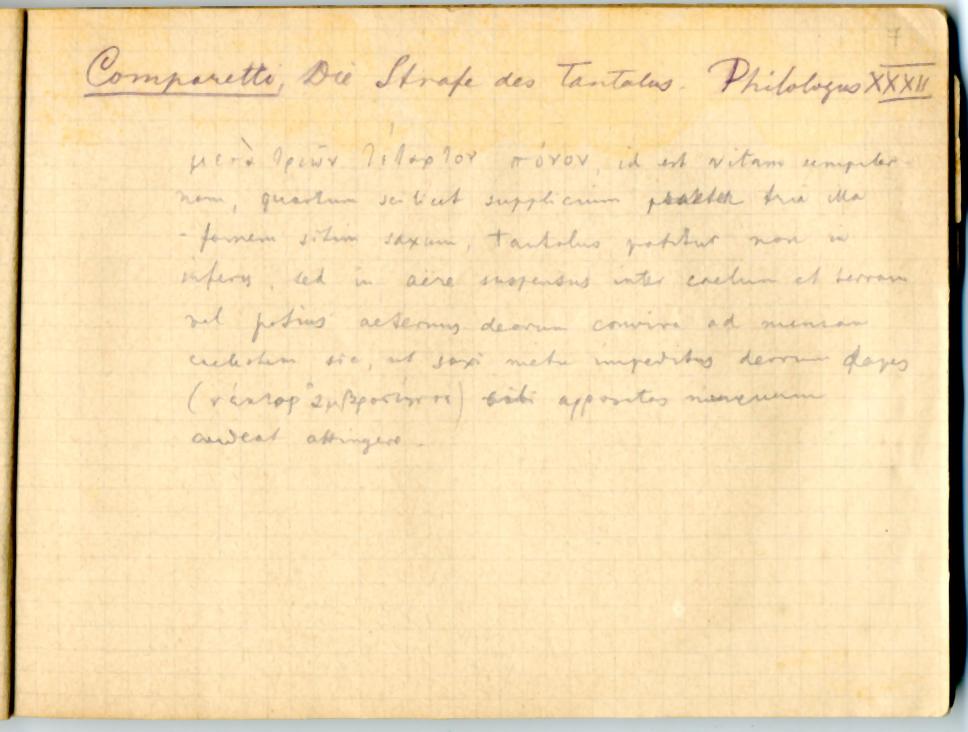 7
Comparetti, Die Strafe des Tantalus. Philologus XXXII
μετὰ τριῶν τέταρτον πόνον, id est vitam sempiter-
nam, quartum scilicet supplicium praeter tria illa
- famem sitim saxum, Tantalus patitur non in
inferis, sed in aere suspensus inter caelum et terram
vel potius aeternus deorum conviva ad mensam
caelestem sic, ut saxi metu impeditus deorum dapes
(νέκταρ ἀμβροσίην τε) sibi appositas nunquam
audeat attingere.